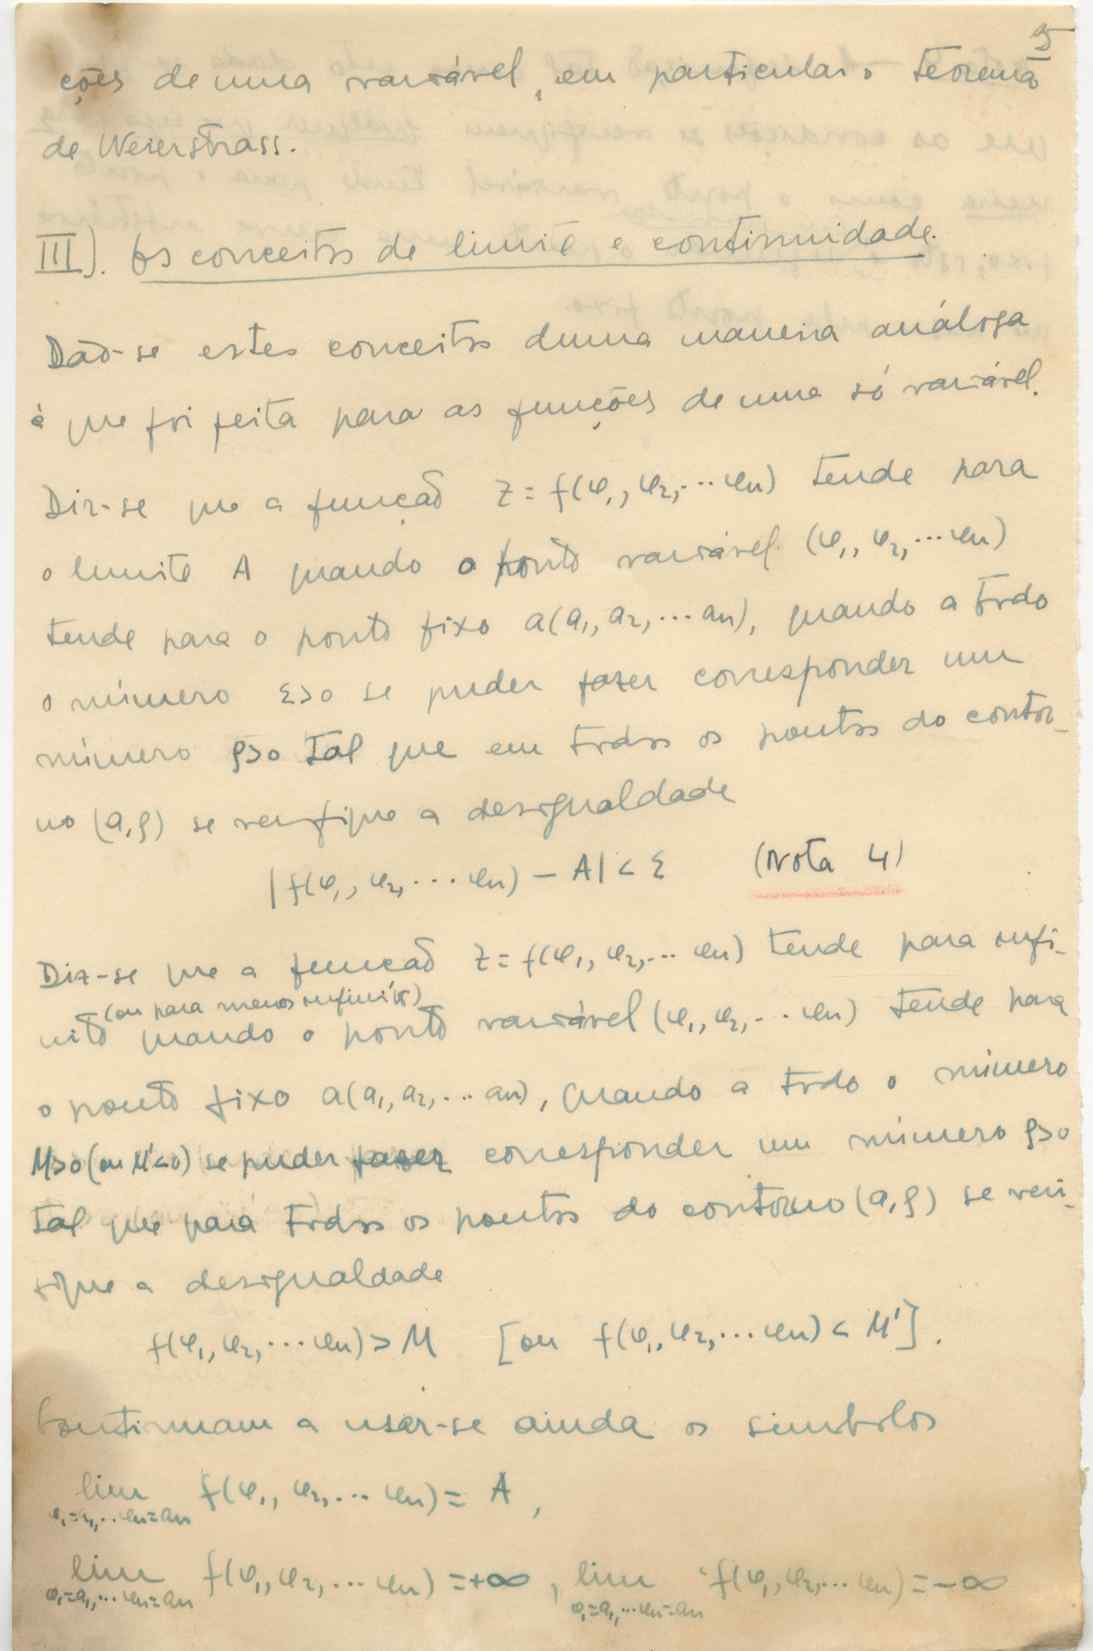 5
ções de uma variável, em particular o teorema
de Weierstrass.
III). Os conceitos de limite e continuidade.
Dão-se estes conceitos duma maneira análoga
à que foi feita para as funções de uma só variável.
Diz-se que a função z = f(φ₁, φ₂, ... φn) tende para
o limite A quando o ponto variável (φ₁, φ₂, ... φn)
tende para o ponto fixo a(a₁, a₂, ... an), quando a todo
o número ε>0 se puder fazer corresponder um
número ρ>0 tal que em todos os pontos do contor-
no (a, ρ) se verifique a desigualdade
|f(φ₁, φ₂, ... φn) – A| < ε (Nota 4)
Diz-se que a função z = f(φ₁, φ₂, ... φn) tende para infi-
(ou para menos infinito)
nito quando o ponto variável (φ₁, φ₂, ... φn) tende para
o ponto fixo a(a₁, a₂, ... an), quando a todo o número
M>0 (ou M'<0) se puder fazer corresponder um número ρ>0
tal que para todos os pontos do contorno (a, ρ) se veri-
fique a desigualdade
f(φ₁, φ₂, ... φn) > M [ou f(φ₁, φ₂, ... φn) < M'].
Continuam a usar-se ainda os simbolos
lim f(φ₁, φ₂, ... φn) = A,
φ₁=a₁, ... φn=an
lim f(φ₁, φ₂, ... φn) = +∞, lim f(φ₁, φ₂, ... φn) = –∞
φ₁=a₁, ... φn=an φ₁=a₁, ... φn=an